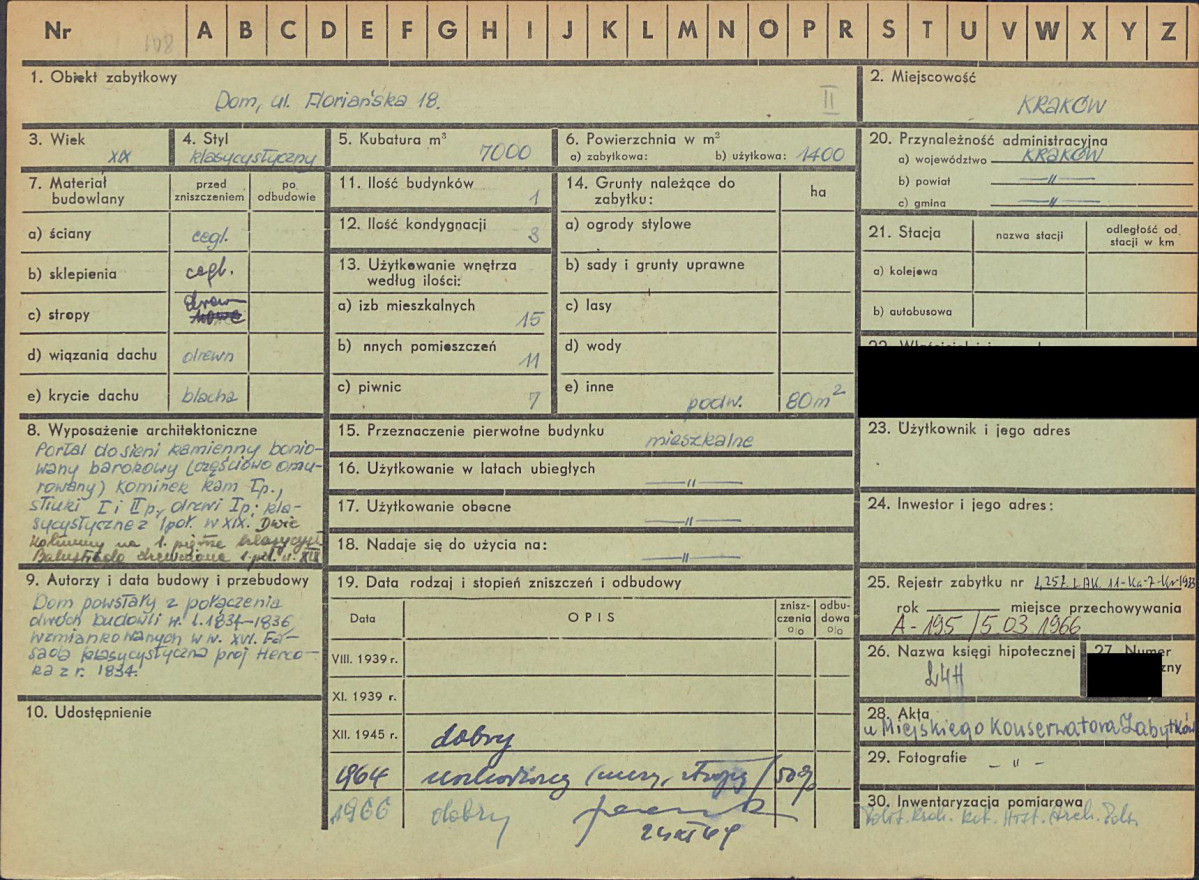 Nr 108 A B C D E F G H I J K L M N O P R S T U V W X Y Z
1. Obiekt zabytkowy
Dom, ul. Floriańska 18. II
2. Miejscowość
KRAKÓW
3. Wiek
XIX
4. Styl
klasycystyczny
5. Kubatura m³
7000
6. Powierzchnia w m²
a) zabytkowa: b) użytkowa: 1400
20. Przynależność administracyjna
a) województwo KRAKÓW
b) powiat —"—
c) gmina —"—
7. Materiał budowlany
przed zniszczeniem
po odbudowie
a) ściany cegl.
b) sklepienia cegl.
c) stropy drew
d) wiązania dachu drewn
e) krycie dachu blacha
11. Ilość budynków 1
12. Ilość kondygnacji 3
13. Użytkowanie wnętrza
według ilości:
a) izb mieszkalnych 15
b) nnych pomieszczeń 11
c) piwnic 7
14. Grunty należące do
zabytku:
ha
a) ogrody stylowe
b) sady i grunty uprawne
c) lasy
d) wody
e) inne podw. 80m²
21. Stacja
nazwa stacji
odległość od
stacji w km
a) kolejowa
b) autobusowa
23. Użytkownik i jego adres
24. Inwestor i jego adres:
8. Wyposażenie architektoniczne
Portal do sieni kamienny bonio-
wany barokowy (częściowo omu-
rowany) kominek kam I p.,
stiuki I i II p, drzwi I p; kla-
sycystyczne z 1 poł. w XIX. Dwie
kolumny na 1. piętrze klasycyst.
Balustrada drewniana 1. poł. w. XIX
15. Przeznaczenie pierwotne budynku mieszkalne
16. Użytkowanie w latach ubiegłych —"—
17. Użytkowanie obecne —"—
18. Nadaje się do użycia na: —"—
9. Autorzy i data budowy i przebudowy
Dom powstały z połączenia
dwóch budowli w l. 1834-1836,
wzmiankowanych w w. XVI. Fa-
sada klasycystyczna proj Herco-
ka z r. 1834.
10. Udostępnienie
19. Data rodzaj i stopień zniszczenia i odbudowy
Data
OPIS
znisz-
czenia
%
odbu-
dowa
%
VIII. 1939 r.
XI. 1939 r.
XII. 1945 r. dobry
1964 uszkodzony (mury, stropy) 50%
1966 dobry
24 XI 64
25. Rejestr zabytku nr
rok miejsce przechowywania
A-195 / 5.03 1966
26. Nazwa księgi hipotecznej
L4H
27. Numer
zny
28. Akta
u Miejskiego Konserwatora Zabytków
29. Fotografie – " –
30. Inwentaryzacja pomiarowa
Polit. Krak. Kat. Hist. Arch. Pols.